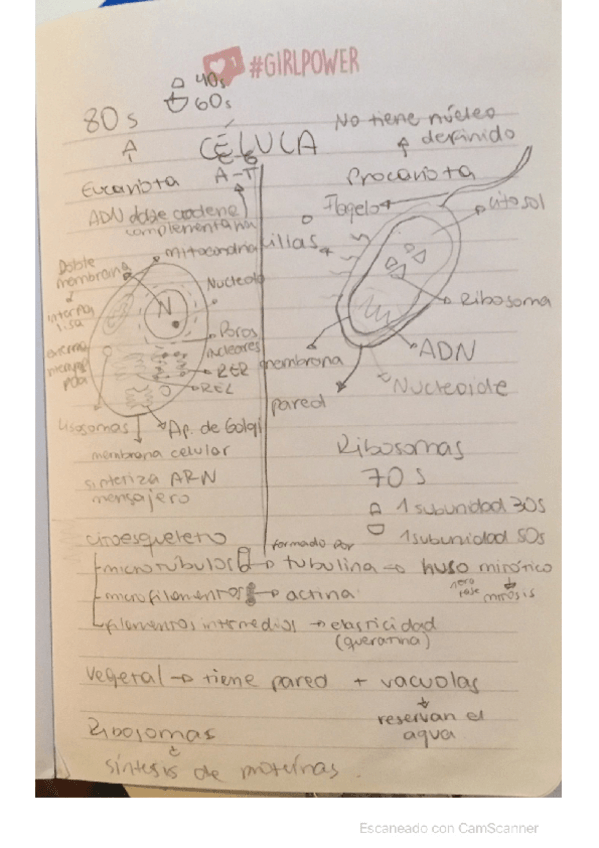 #GIRLPOWER
40s
60s
80s
CÉLULA
No tiene núcleo
definido
Eucariota
A-T
C-G
Procariota
ADN doble cadena
complementaria
Flagelo
citosol
mitocondria
cilias
Doble
membrana
Nucleolo
N
interna
lisa
Ribosoma
Poros
nucleares
externa
membrana
ADN
RER
REL
Nucleoide
pared
Lisosomas
Ap. de Golgi
membrana celular
Ribosomas
sintetiza ARN
mensajero
70s
1 subunidad 30s
1 subunidad 50s
citoesqueleto
formado por
microtúbulos → tubulina → huso mitótico
mitosis
microfilamentos → actina
filamentos intermedios → elasticidad
(queratina)
vegetal → tiene pared + vacuolas
reservan el
agua
Ribosomas
síntesis de proteínas.
Escaneado con CamScanner